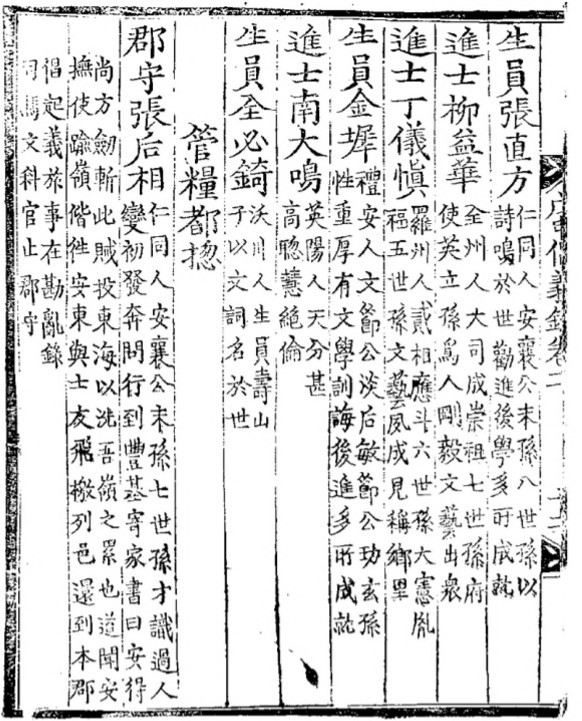 生員張直方 仁同人安襄公末孫八世孫以
詩鳴於世勸進後學多所成就
進士柳益華 全州人大司成崇祖七世孫府
使英立孫爲人剛毅文藝出衆
進士丁儀愼 羅州人貳相應斗六世孫大憲胤
福五世孫文藝夙成見稱鄕里
生員金墀 禮安人文節公淡后敏節公玏玄孫
性重厚有文學訓誨後進多所成就
進士南大鳴 英陽人天分甚
高聰慧絶倫
生員全必錡 沃川人生員壽山
子以文詞名於世
管糧都摠
郡守張后相 仁同人安襄公末孫七世孫才識過人
變初發奔問行到豐基寄家書曰安得
尚方劒斬此賊投東海以洗吾嶺之累也道聞安
撫使踰嶺偕徃安東與士友飛檄列邑還到本郡
倡起義旅事在勘亂錄
司馬文科官止郡守